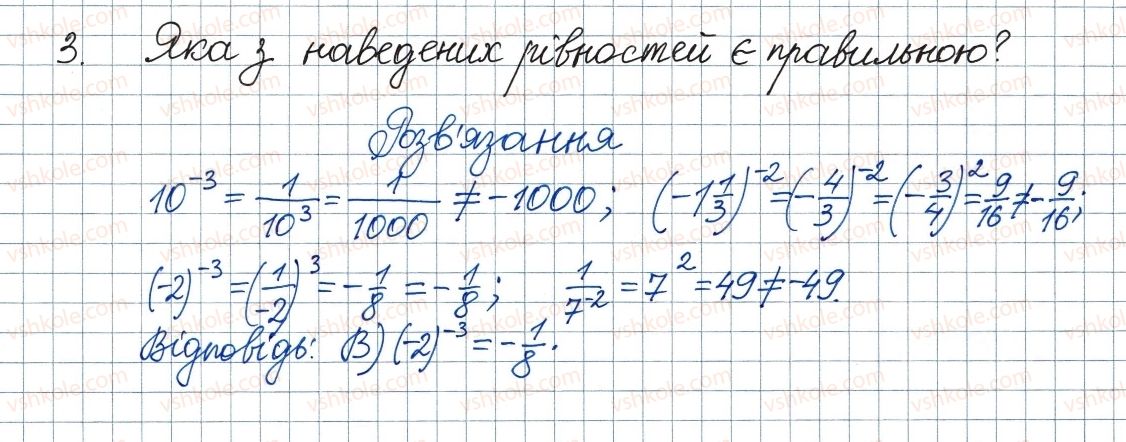 3. Яка з наведених рівностей є правильною?
Розв'язання
10⁻³ = 1/10³ = 1/1000 ≠ -1000; (-1 1/3)⁻² = (-4/3)⁻² = (-3/4)² = 9/16 ≠ -9/16;
(-2)⁻³ = (1/-2)³ = -1/8 = -1/8; 1/7⁻² = 7² = 49 ≠ -49.
Відповідь: В) (-2)⁻³ = -1/8.